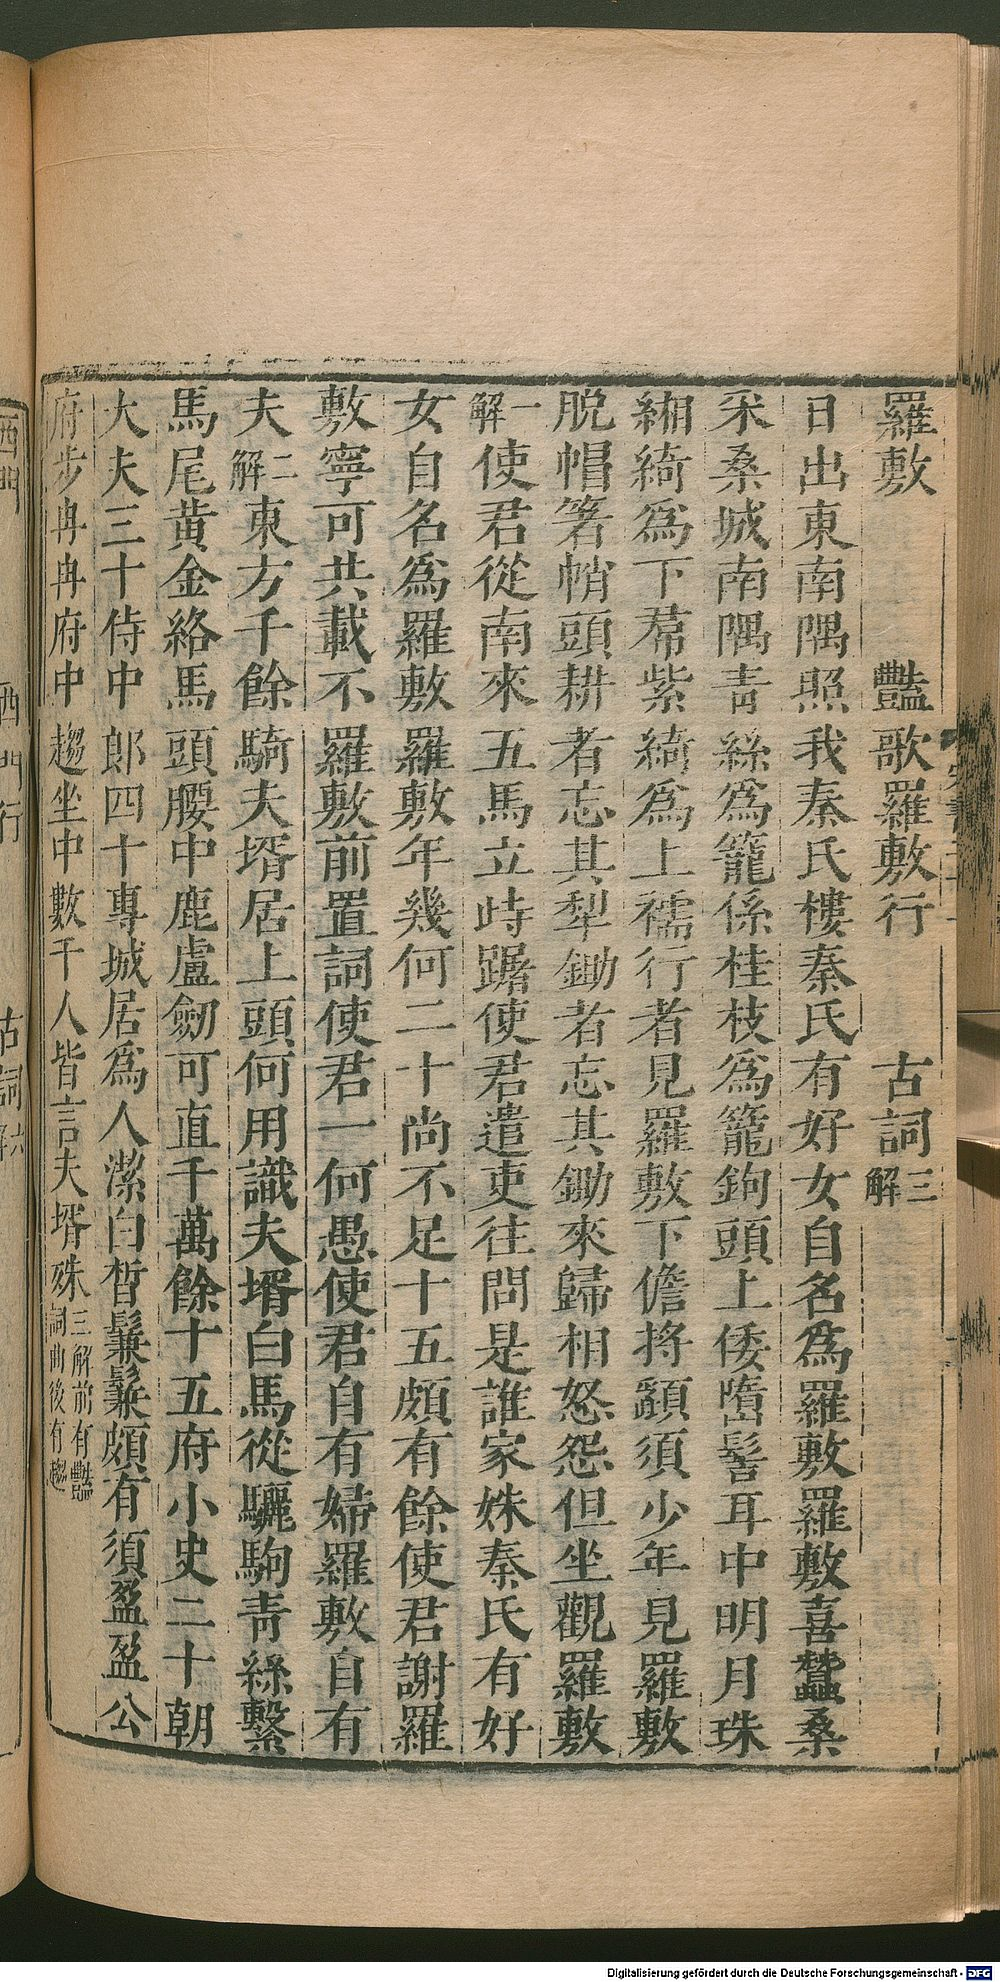 羅敷　豔歌羅敷行　古詞三解
日出東南隅照我秦氏樓秦氏有好女自名爲羅敷羅敷喜蠶桑
采桑城南隅青絲爲籠係桂枝爲籠鉤頭上倭墮髻耳中明月珠
緗綺爲下帬紫綺爲上襦行者見羅敷下儋捋顬須少年見羅敷
脫帽著帩頭耕者忘其犁鋤者忘其鋤來歸相怒怨但坐觀羅敷
一解使君從南來五馬立峙踞使君遣吏往問是誰家姝秦氏有好
女自名爲羅敷羅敷年幾何二十尚不足十五頗有餘使君謝羅
敷寧可共載不羅敷前置詞使君一何愚使君自有婦羅敷自有
夫二解東方千餘騎夫壻居上頭何用識夫壻白馬從驪駒青絲繫
馬尾黃金絡馬頭腰中鹿盧劒可直千萬餘十五府小史二十朝
大夫三十侍中郎四十專城居爲人潔白晳鬑鬑頗有須盈盈公
府步冉冉府中趨坐中數千人皆言夫壻殊三解前有豔詞曲後有趨
西門　西門行　古詞六解
Digitalisierung gefördert durch die Deutsche Forschungsgemeinschaft - DFG